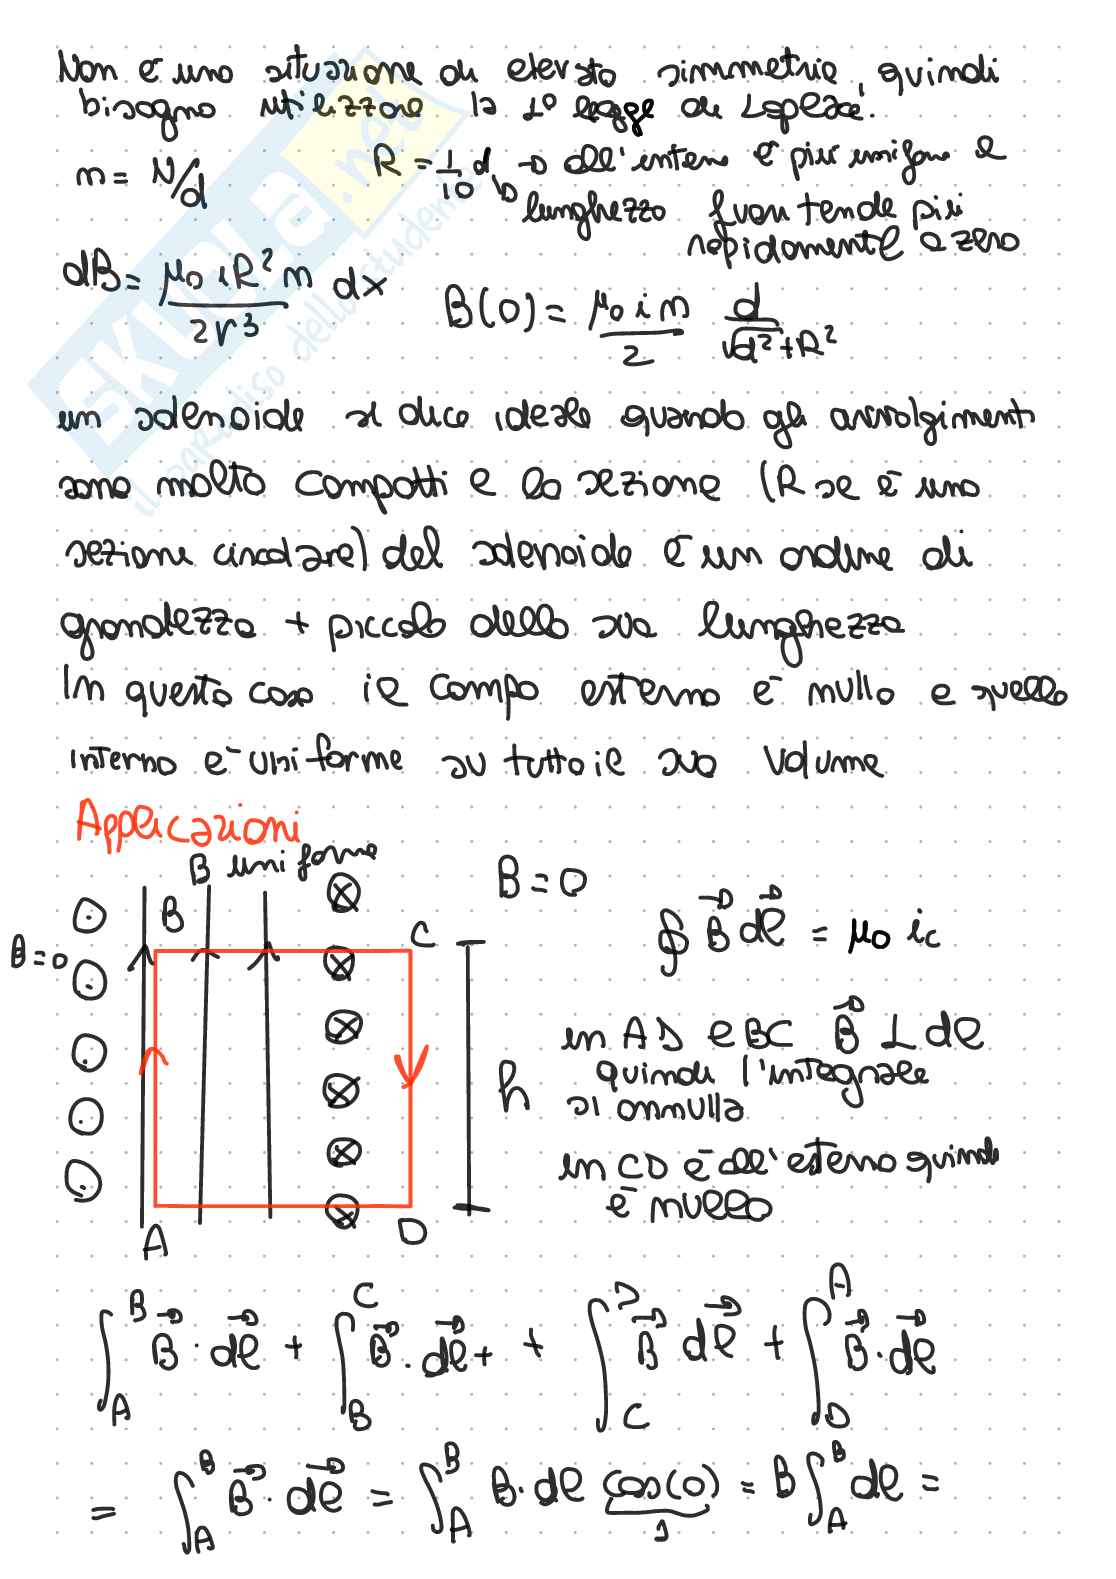 Non è una situazione di elevata simmetria, quindi
bisogna utilizzare la 1° legge di Laplace.
n = N/d
R = 1/10 d → all'interno è più uniforme e
lunghezza
fuori tende più
rapidamente a zero
dB = μ0 i R² n / 2r³ dx
B(0) = μ0 i n / 2 d / √d²+R²
un solenoide si dice ideale quando gli avvolgimenti
sono molto compatti e la sezione (R se è una
sezione circolare) del solenoide è un ordine di
grandezza + piccolo della sua lunghezza
In questo caso il campo esterno è nullo e quello
interno è uniforme su tutto il suo volume
Applicazioni
B uniforme
B = 0
B
C
B = 0
∮ B⃗ dl⃗ = μ0 ic
in AD e BC B⃗ ⊥ dl
quindi l'integrale
si annulla
h
in CD è all'esterno quindi
è nullo
A
D
∫_A^B B⃗ · dl⃗ + ∫_B^C B⃗ · dl⃗ + + ∫_C^D B⃗ dl⃗ + ∫_D^A B⃗ · dl⃗
= ∫_A^B B⃗ · dl⃗ = ∫_A^B B · dl cos(0) = B ∫_A^B dl =
1
SKUOLA.net
il paradiso dello studente